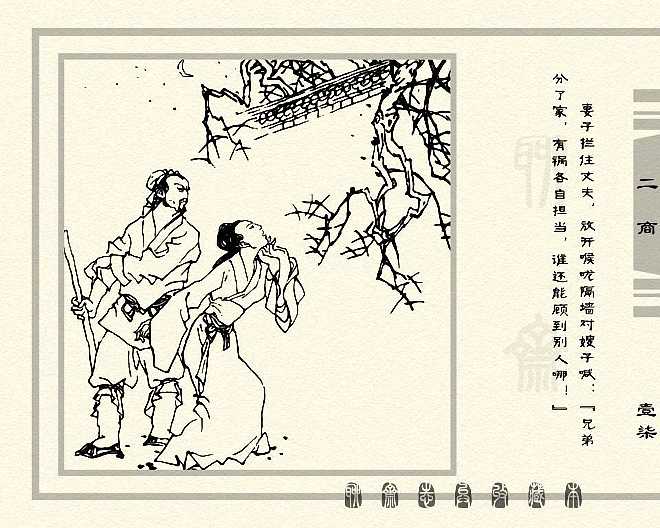 妻子拦住丈夫，放开喉咙隔墙对嫂子喊：『兄弟
分了家，有祸各自担当，谁还能顾到别人哪！』
二商
壹柒
聊斋志异收藏本